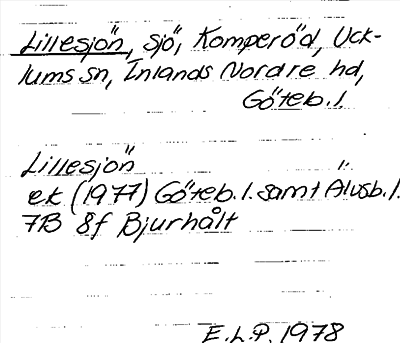 Lillesjön, sjö, Komperöd, Uck-
lums sn, Inlands Nordre hd,
Göteb. l.
Lillesjön
ek (1977) Göteb. l. samt Älvsb. l.
7B 8f Bjurhålt
E.L.P. 1978